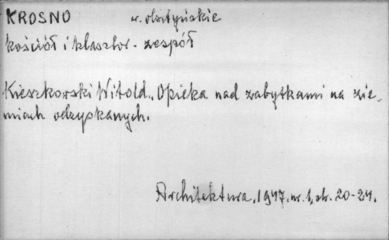 KROSNO w. olsztyńskie
kościół i klasztor - zespół
Kieszkowski Witold. Opieka nad zabytkami na zie-
miach odzyskanych.
Architektura, 1947, nr. 1, str. 20-24.